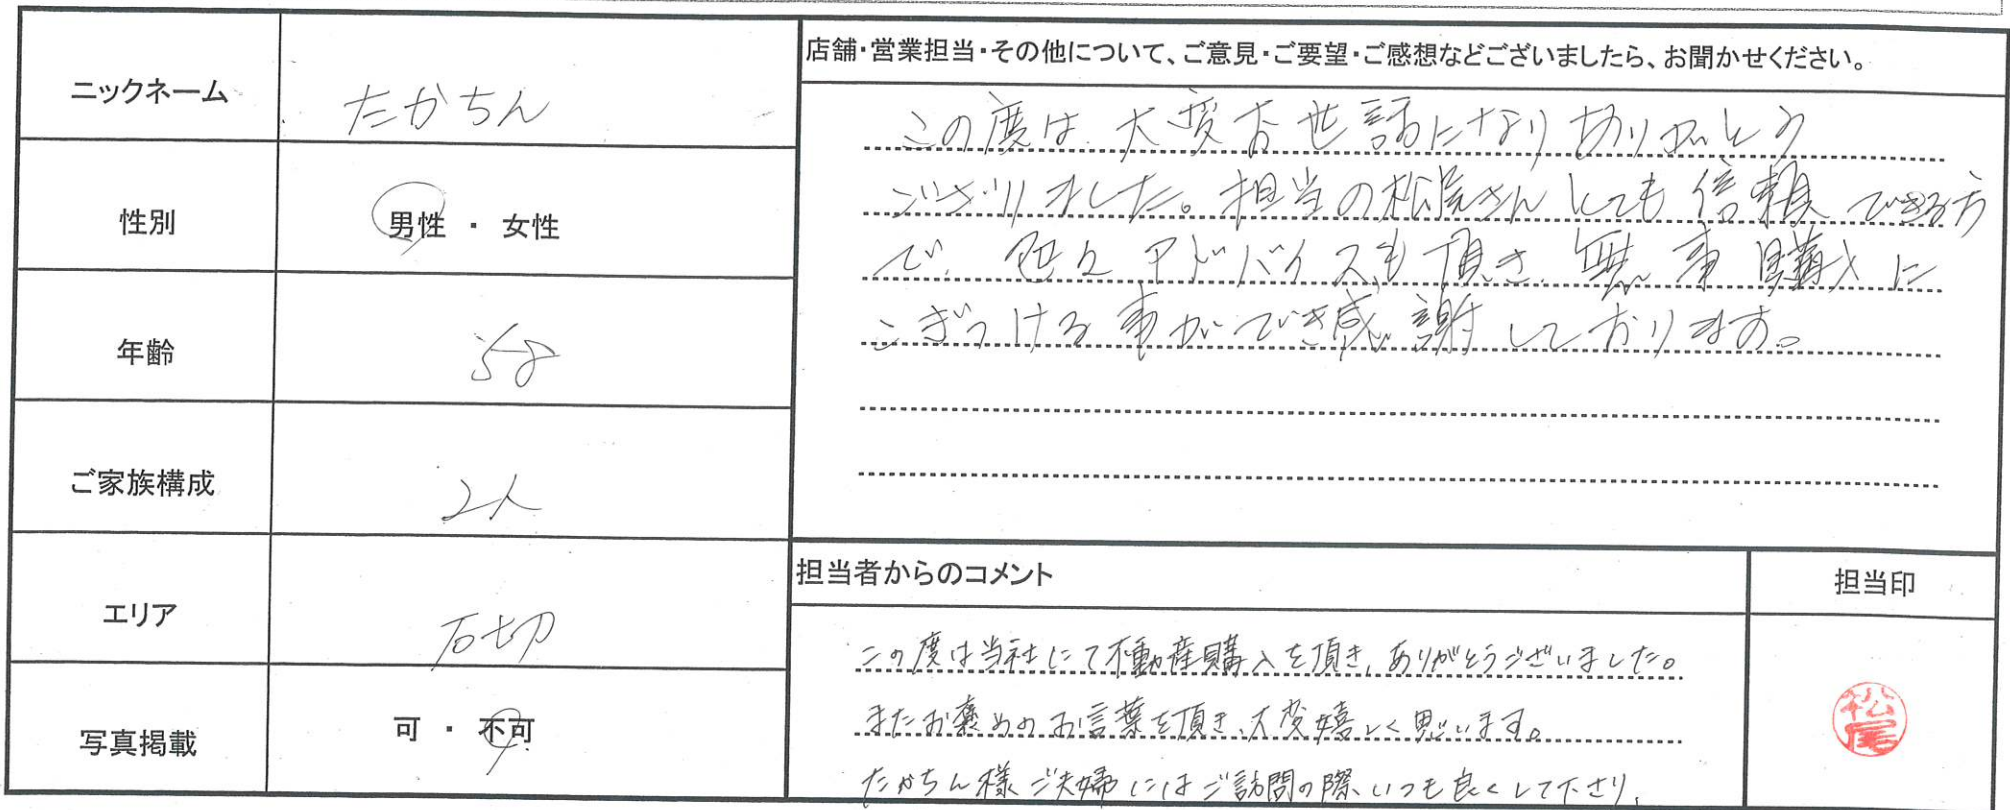 ニックネーム
たかちん
性別
男性 ・ 女性
年齢
58
ご家族構成
2人
エリア
石切
写真掲載
可 ・ 不可
店舗・営業担当・その他について、ご意見・ご要望・ご感想などございましたら、お聞かせください。
この度は大変お世話になりありがとう
ございました。担当の松尾さんとても信頼できる方
で、色々アドバイスも頂き、無事購入に
こぎつける事ができ感謝しております。
担当者からのコメント
この度は当社にて不動産購入を頂き、ありがとうございました。
またお褒めのお言葉を頂き、大変嬉しく思います。
たかちん様ご夫婦にはご訪問の際、いつも良くして下さり、
担当印
松尾